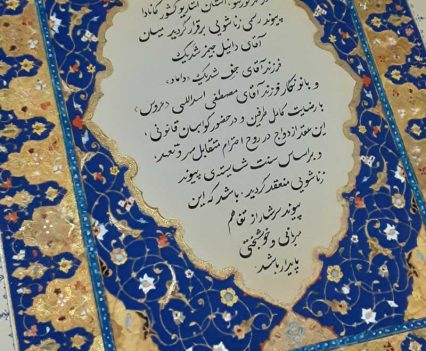 در تورنتو، استان انتاریو کشور کانادا
پیوند رسمی زناشویی برقرار گردید میان
آقای دانیل جیمز شدریک
فرزند آقای جف شدریک (داماد)
و بانو نگار فرزند آقای مصطفی اسداللهی (عروس)
با رضایت کامل طرفین و در حضور گواهان قانونی،
این عقد ازدواج در روح احترام متقابل مهر و تعهد،
و بر اساس سنت شایسته‌ی پیوند
زناشویی منعقد گردید. باشد که این
پیوند سرشار از تفاهم
مهربانی و خوشبختی
پایدار باشد.